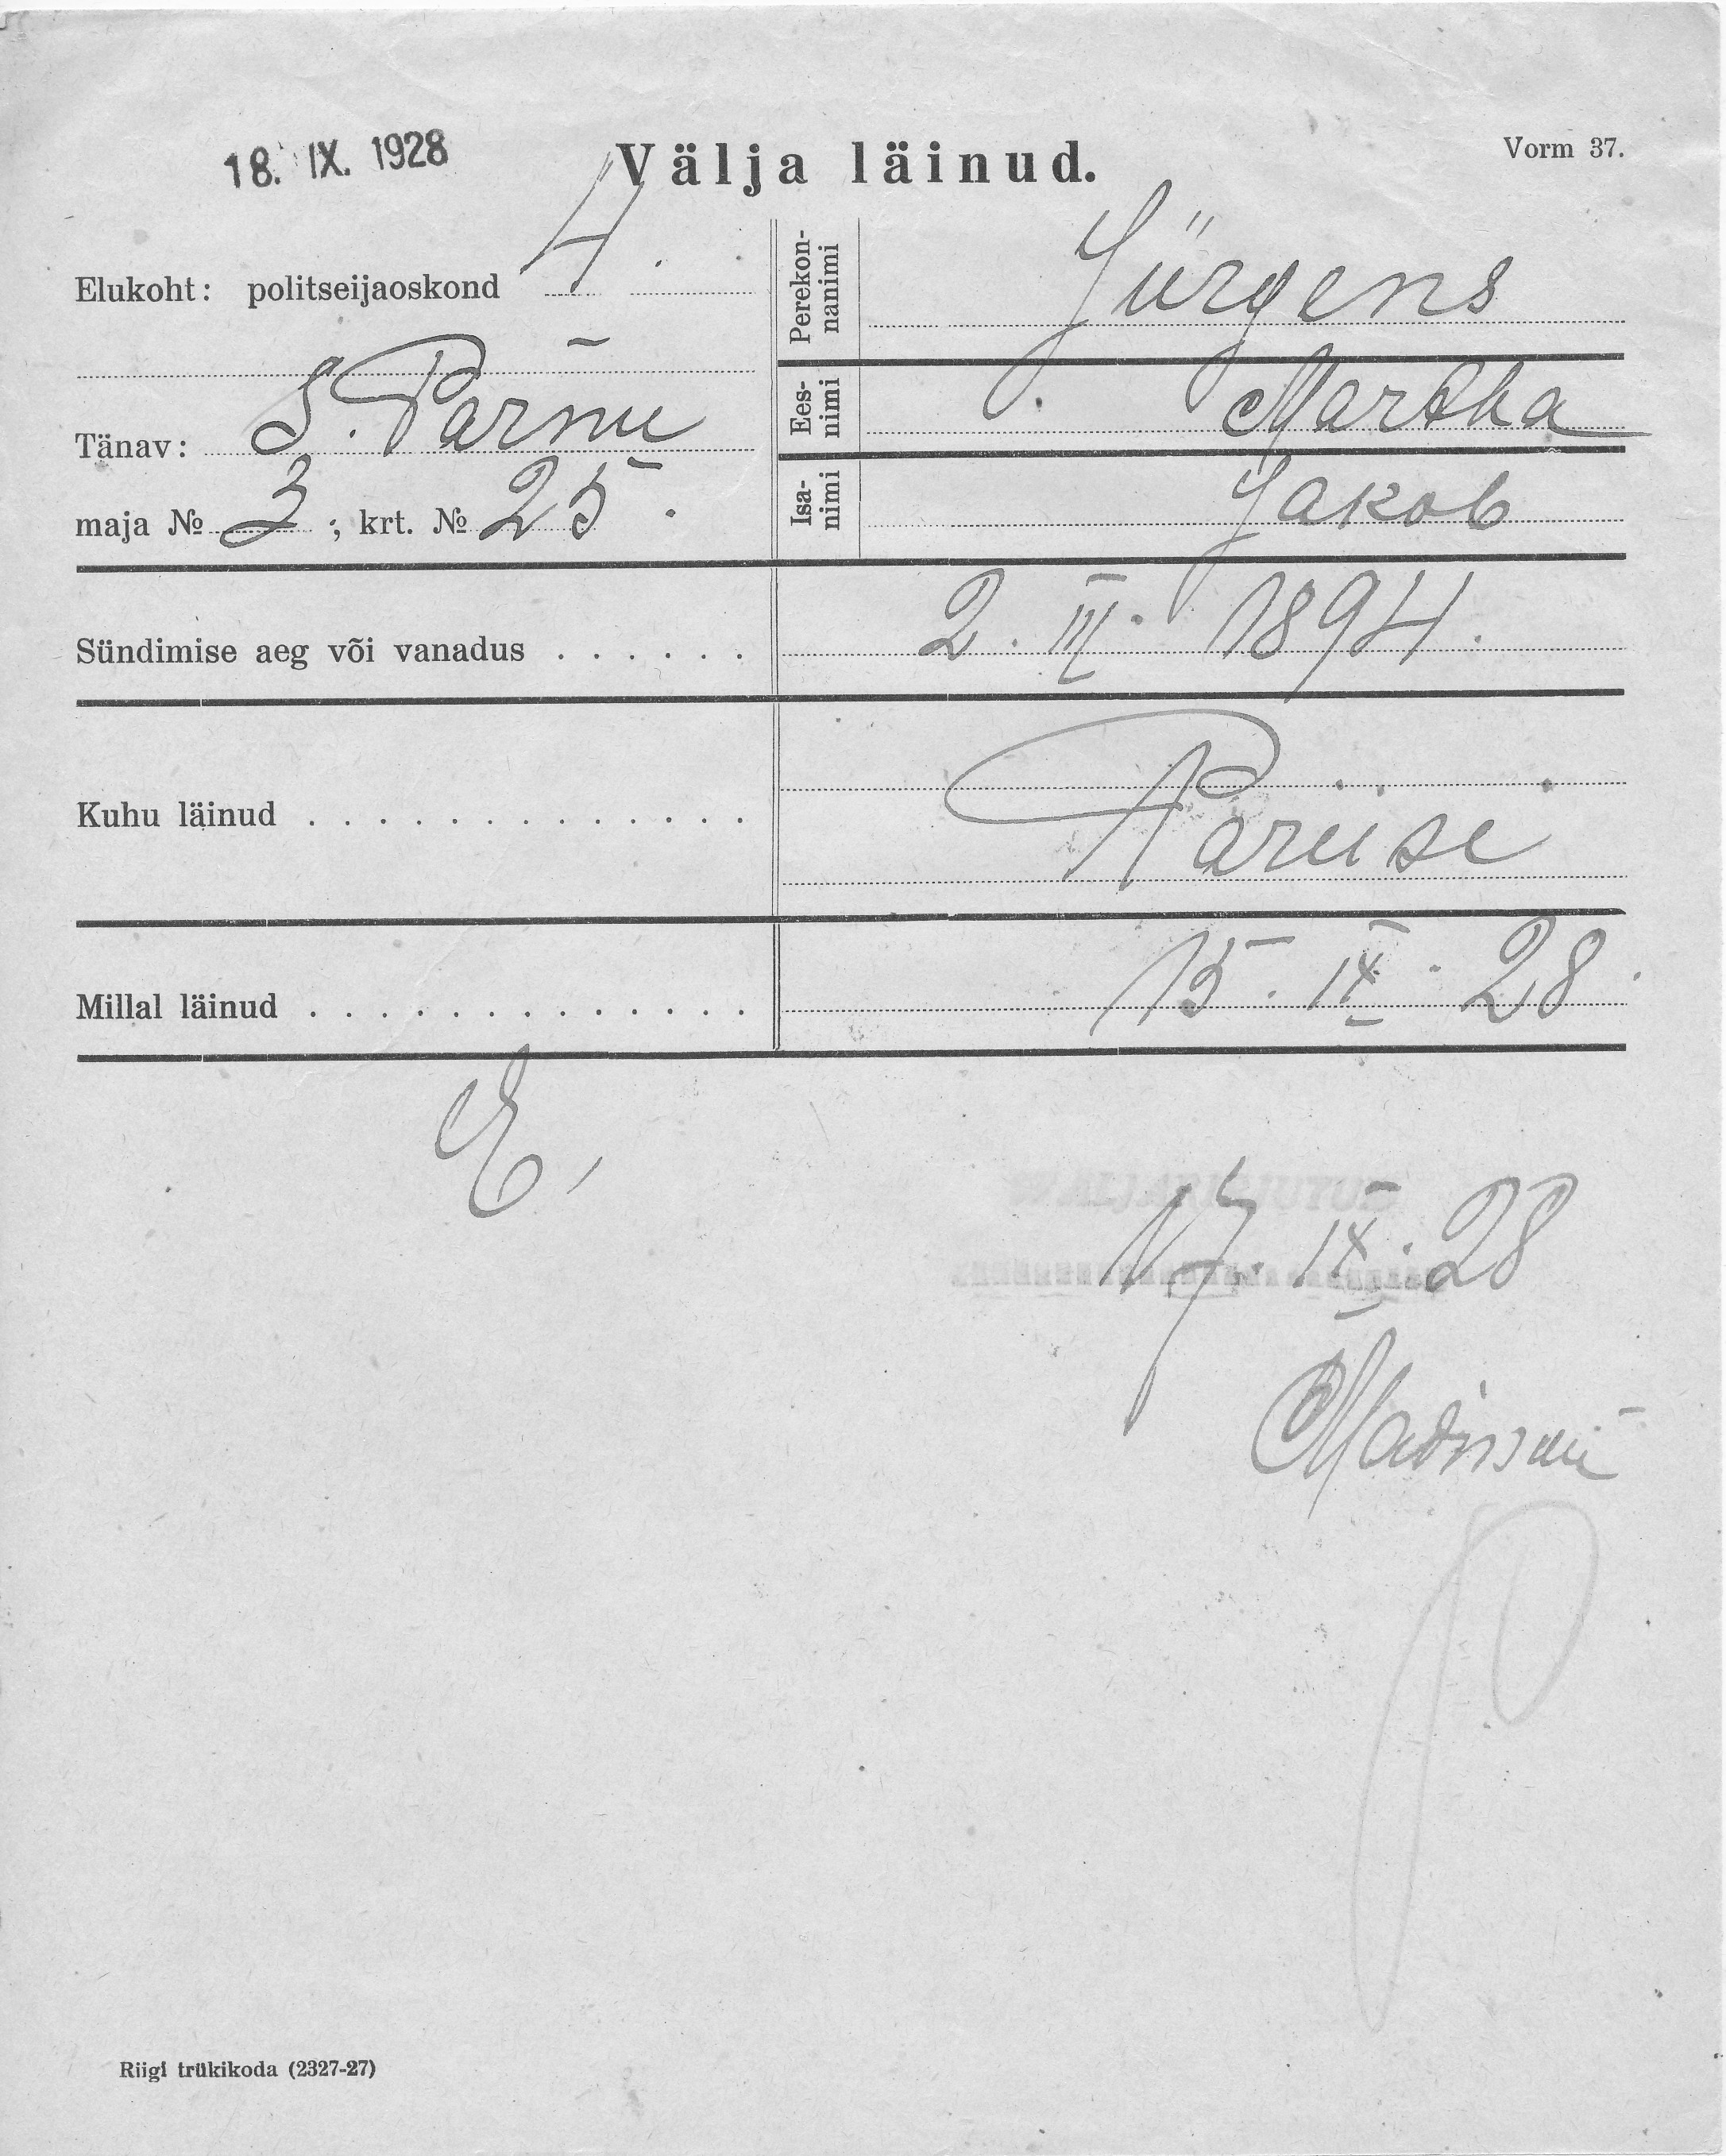 18. IX. 1928
Välja läinud.
Vorm 37.
Elukoht: politseijaoskond 4.
Tänav: S. Pärnu
maja № 3; krt. № 25.
Perekonnanimi Jürgens
Eesnimi Martha
Isanimi Jakob
Sündimise aeg või vanadus . . . . . . 2. III. 1894.
Kuhu läinud . . . . . . . . . . . . . . Pariisi
Millal läinud . . . . . . . . . . . . . . 15. IX. 28.
17. IX. 28
Riigi trükikoda (2327-27)